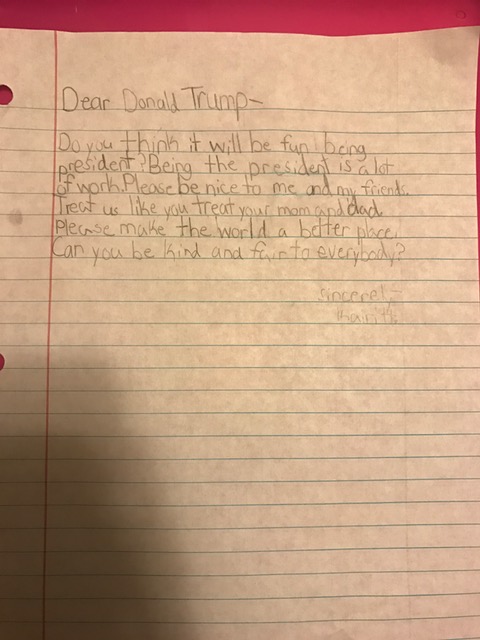 Dear Donald Trump-
Do you think it will be fun being
president? Being the president is a lot
of work. Please be nice to me and my friends.
Treat us like you treat your mom and dad.
Please make the world a better place.
Can you be kind and fair to everybody?
sincerel